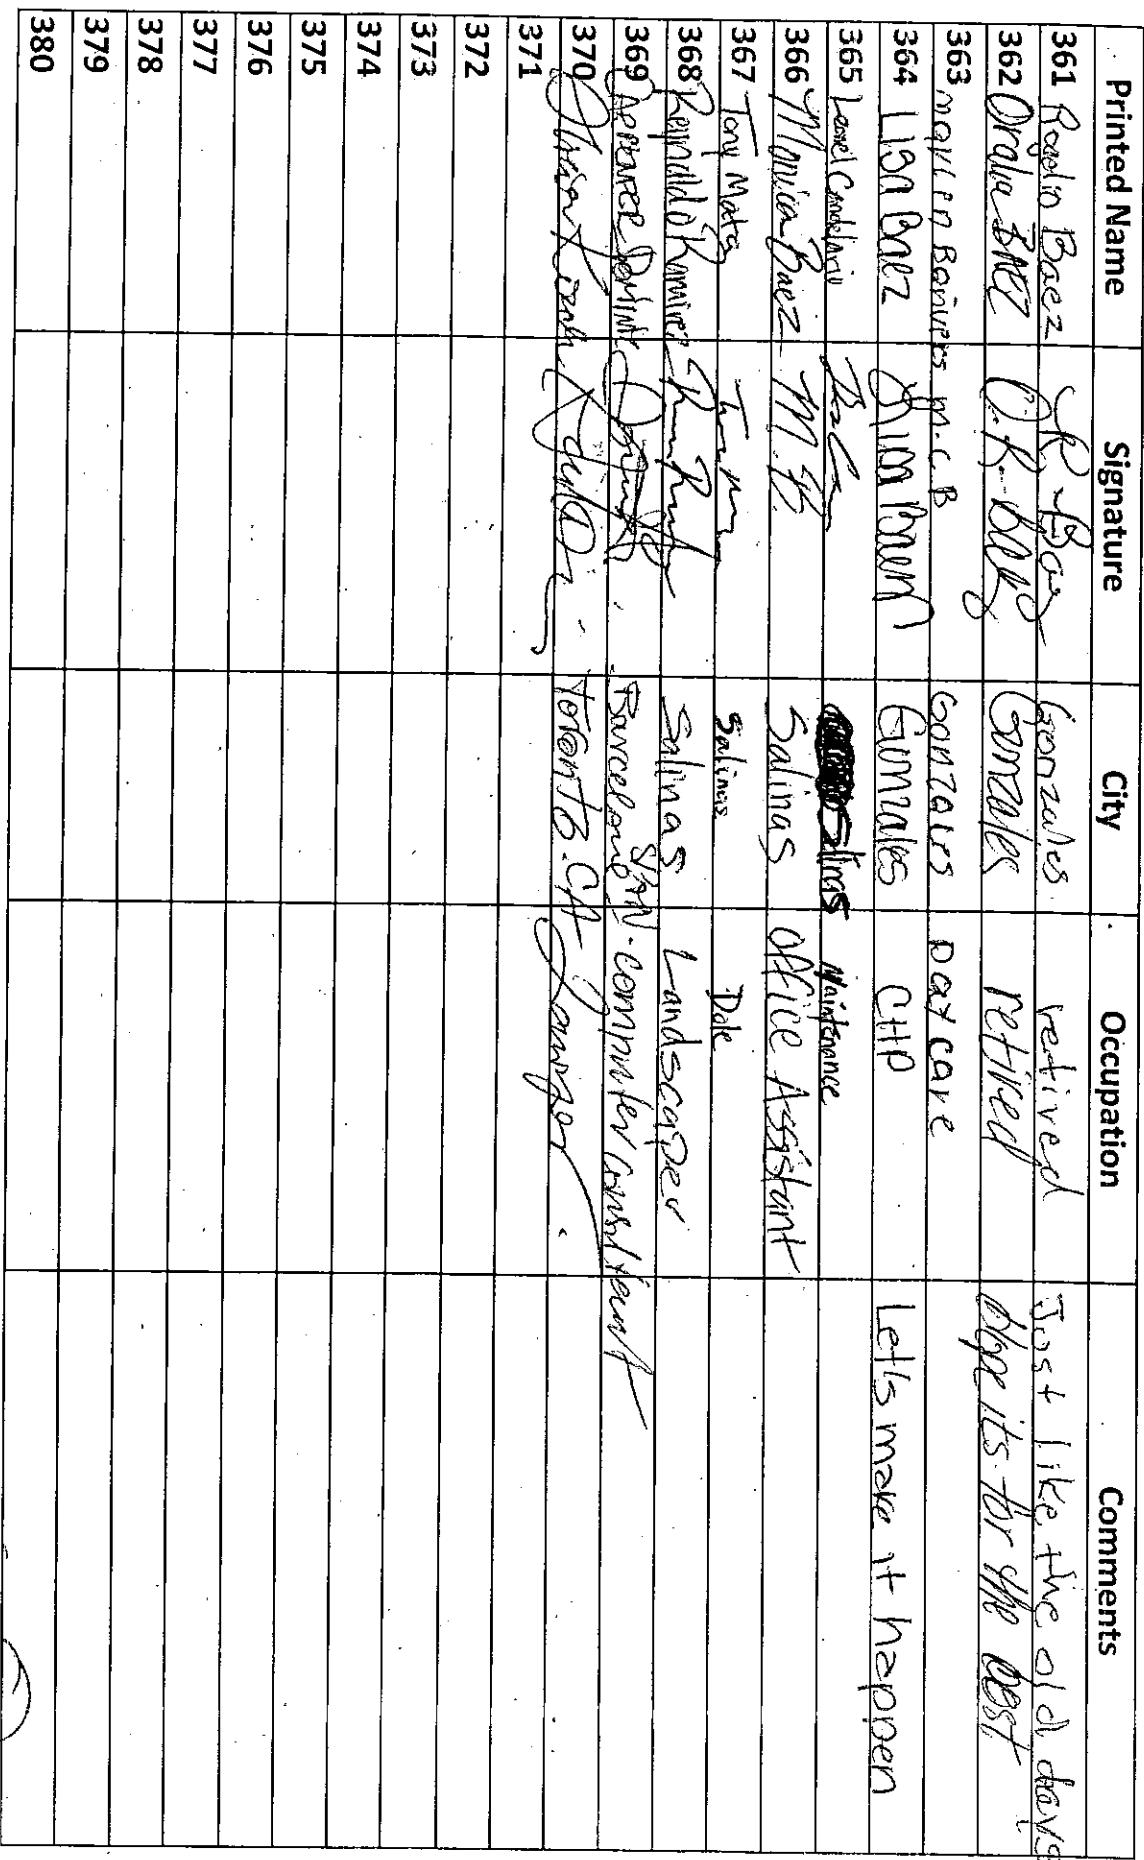 Printed Name Signature City Occupation Comments
361 Rogelio Baez R Baez Gonzales retired Just like the old days
362 Oralia BAEZ O.B. Baez Gonzales retired Hope its for the best
363 m.c.B Gonzales Day care
364 Lisa Baez Gonzales CHP Let's make it happen
365 Leonel Candelario Salinas Maintenance
366 Monica Baez M.B Salinas Office Assistant
367 Tony Mata Salinas Dole
368 Reynaldo Ramirez Salinas Landscaper
369 Barcelona SPAN - computer consultant
370 Toronto. CA
371
372
373
374
375
376
377
378
379
380